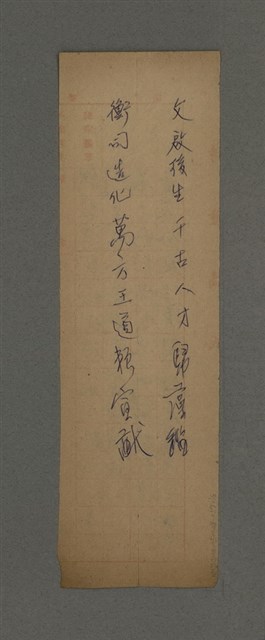 文啟後生千古人才歸藻鑑
衡司造化萬方王道賴宣猷